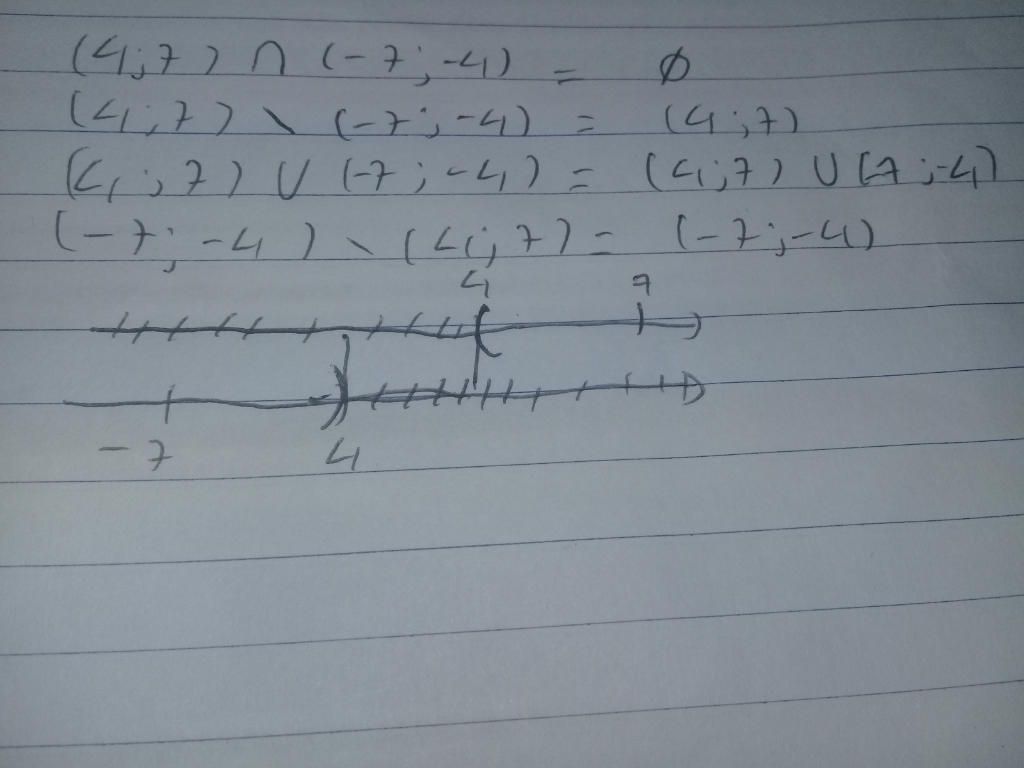 (4;7) ∩ (-7;-4) = ∅
(4;7) \ (-7;-4) = (4;7)
(4;7) ∪ (-7;-4) = (4;7) ∪ (-7;-4)
(-7;-4) \ (4;7) = (-7;-4)
4 7
-7 4